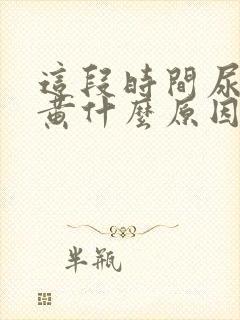 這段時間尿
黃什麼原因
半瓶